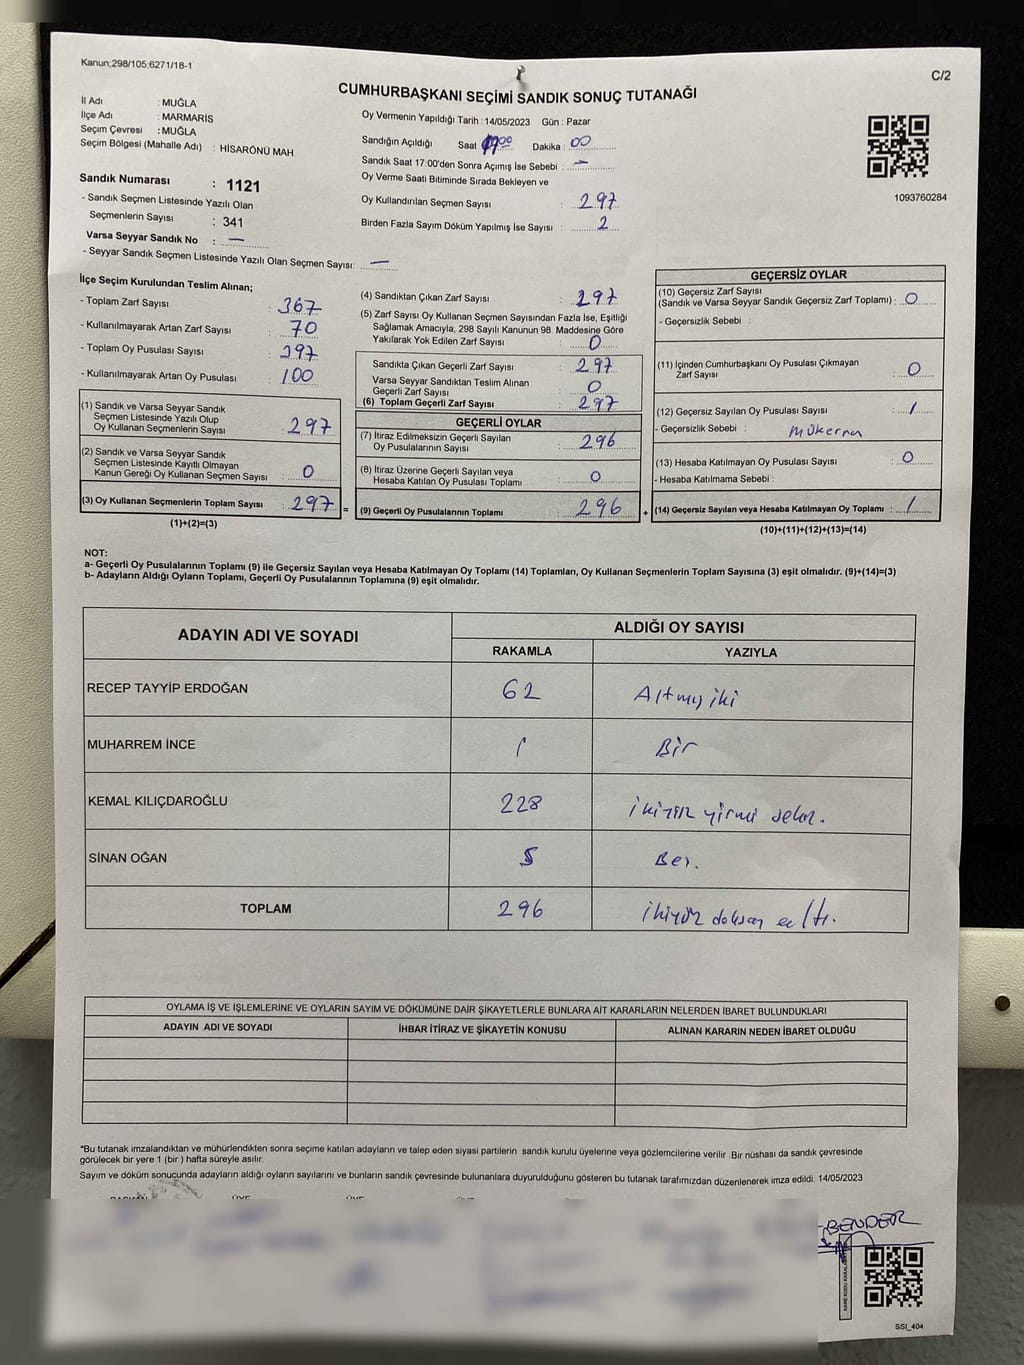 Kanun;298/105,6271/18-1
C/2
CUMHURBAŞKANI SEÇİMİ SANDIK SONUÇ TUTANAĞI
İl Adı : MUĞLA
İlçe Adı : MARMARİS
Seçim Çevresi : MUĞLA
Seçim Bölgesi (Mahalle Adı) : HİSARÖNÜ MAH
Sandık Numarası : 1121
- Sandık Seçmen Listesinde Yazılı Olan
Seçmenlerin Sayısı : 341
Varsa Seyyar Sandık No : —
- Seyyar Sandık Seçmen Listesinde Yazılı Olan Seçmen Sayısı: —
Oy Vermenin Yapıldığı Tarih : 14/05/2023 Gün : Pazar
Sandığın Açıldığı Saat Dakika : 00
Sandık Saat 17:00'den Sonra Açımış İse Sebebi : —
Oy Verme Saati Bitiminde Sırada Bekleyen ve
Oy Kullandırılan Seçmen Sayısı : 297
Birden Fazla Sayım Döküm Yapılmış İse Sayısı : 2
1093760284
İlçe Seçim Kurulundan Teslim Alınan;
- Toplam Zarf Sayısı : 367
- Kullanılmayarak Artan Zarf Sayısı : 70
- Toplam Oy Pusulası Sayısı : 397
- Kullanılmayarak Artan Oy Pusulası : 100
(1) Sandık ve Varsa Seyyar Sandık
Seçmen Listesinde Yazılı Olup
Oy Kullanan Seçmenlerin Sayısı : 297
(2) Sandık ve Varsa Seyyar Sandık
Seçmen Listesinde Kayıtlı Olmayan
Kanun Gereği Oy Kullanan Seçmen Sayısı : 0
(3) Oy Kullanan Seçmenlerin Toplam Sayısı : 297 =
(1)+(2)=(3)
(4) Sandıktan Çıkan Zarf Sayısı : 297
(5) Zarf Sayısı Oy Kullanan Seçmen Sayısından Fazla İse, Eşitliği
Sağlamak Amacıyla, 298 Sayılı Kanunun 98. Maddesine Göre
Yakılarak Yok Edilen Zarf Sayısı : 0
Sandıkta Çıkan Geçerli Zarf Sayısı : 297
Varsa Seyyar Sandıktan Teslim Alınan
Geçerli Zarf Sayısı : 0
(6) Toplam Geçerli Zarf Sayısı : 297
GEÇERLİ OYLAR
(7) İtiraz Edilmeksizin Geçerli Sayılan
Oy Pusulalarının Sayısı : 296
(8) İtiraz Üzerine Geçerli Sayılan veya
Hesaba Katılan Oy Pusulası Toplamı : 0
(9) Geçerli Oy Pusulalarının Toplamı : 296 +
GEÇERSİZ OYLAR
(10) Geçersiz Zarf Sayısı
(Sandık ve Varsa Seyyar Sandık Geçersiz Zarf Toplamı) : 0
- Geçersizlik Sebebi :
(11) İçinden Cumhurbaşkanı Oy Pusulası Çıkmayan
Zarf Sayısı : 0
(12) Geçersiz Sayılan Oy Pusulası Sayısı : 1
- Geçersizlik Sebebi :
(13) Hesaba Katılmayan Oy Pusulası Sayısı : 0
- Hesaba Katılmama Sebebi :
(14) Geçersiz Sayılan veya Hesaba Katılmayan Oy Toplamı : 1
(10)+(11)+(12)+(13)=(14)
NOT:
a- Geçerli Oy Pusulalarının Toplamı (9) ile Geçersiz Sayılan veya Hesaba Katılmayan Oy Toplamı (14) Toplamları, Oy Kullanan Seçmenlerin Toplam Sayısına (3) eşit olmalıdır. (9)+(14)=(3)
b- Adayların Aldığı Oyların Toplamı, Geçerli Oy Pusulalarının Toplamına (9) eşit olmalıdır.
ADAYIN ADI VE SOYADI
ALDIĞI OY SAYISI
RAKAMLA YAZIYLA
RECEP TAYYİP ERDOĞAN 62 Altmış iki
MUHARREM İNCE 1 Bir
KEMAL KILIÇDAROĞLU 228 ikiyüz yirmi sekiz.
SİNAN OĞAN 5 Beş.
TOPLAM 296 ikiyüz doksan altı.
OYLAMA İŞ VE İŞLEMLERİNE VE OYLARIN SAYIM VE DÖKÜMÜNE DAİR ŞİKAYETLERLE BUNLARA AİT KARARLARIN NELERDEN İBARET BULUNDUKLARI
ADAYIN ADI VE SOYADI İHBAR İTİRAZ VE ŞİKAYETİN KONUSU ALINAN KARARIN NEDEN İBARET OLDUĞU
*Bu tutanak imzalandıktan ve mühürlendikten sonra seçime katılan adayların ve talep eden siyasi partilerin sandık kurulu üyelerine veya gözlemcilerine verilir .Bir nüshası da sandık çevresinde
görülecek bir yere 1 (bir ) hafta süreyle asılır.
Sayım ve döküm sonucunda adayların aldığı oyların sayılarını ve bunların sandık çevresinde bulunanlara duyurulduğunu gösteren bu tutanak tarafımızdan düzenlenerek imza edildi. 14/05/2023
BENDER
SSI_404